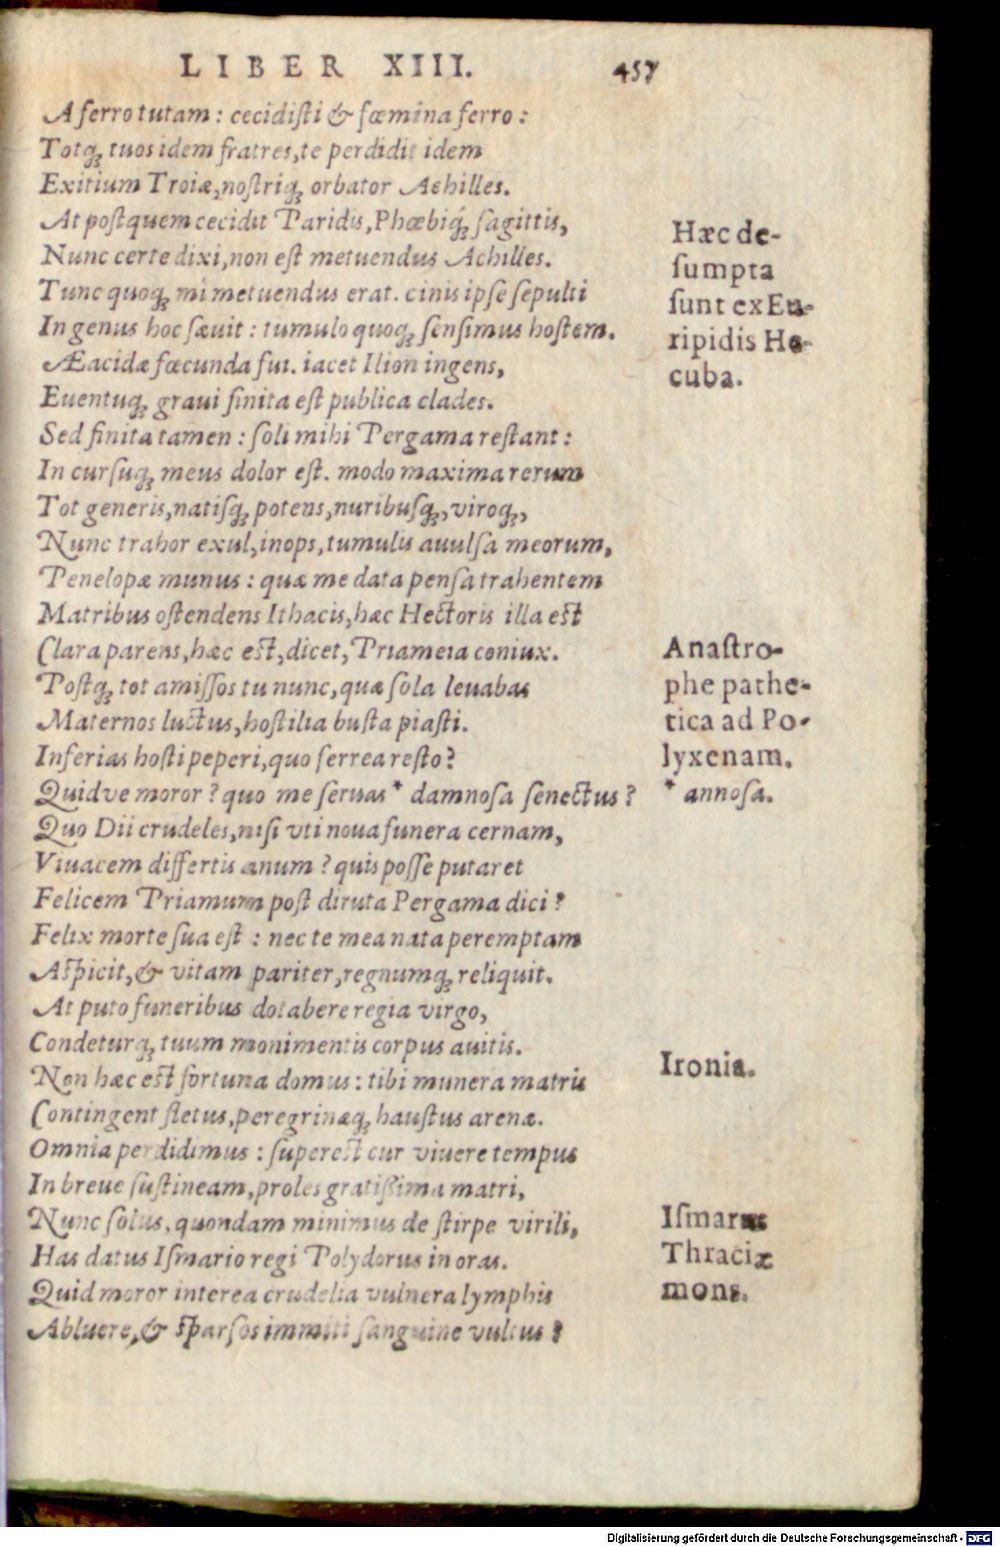 LIBER XIII. 457
A ferro tutam : cecidisti & fœmina ferro :
Totq́ꝫ tuos idem fratres, te perdidit idem
Exitium Troiæ, nostriqꝫ orbator Achilles.
At postquem cecidit Paridis, Phœbiq́ꝫ sagittis,
Nunc certe dixi, non est metuendus Achilles.
Tunc quoqꝫ mi metuendus erat. cinis ipse sepulti
In genus hoc sæuit : tumulo quoqꝫ sensimus hostem.
Æacidæ fœcunda fui. iacet Ilion ingens,
Euentuqꝫ graui finita est publica clades.
Sed finita tamen : soli mihi Pergama restant :
In cursuqꝫ meus dolor est. modo maxima rerum
Tot generis, natisqꝫ potens, nuribusqꝫ, viroqꝫ,
Nunc trahor exul, inops, tumulis auulsa meorum,
Penelopæ munus : quæ me data pensa trahentem
Matribus ostendens Ithacis, hæc Hectoris illa est
Clara parens, hæc est, dicet, Priameia coniux.
Postqꝫ tot amissos tu nunc, quæ sola leuabas
Maternos luctus, hostilia busta piasti.
Inferias hosti peperi, quo ferrea resto?
Quidve moror ? quo me seruas * damnosa senectus ?
Quo Dii crudeles, nisi vti noua funera cernam,
Viuacem differtis anum ? quis posse putaret
Felicem Priamum post diruta Pergama dici ?
Felix morte sua est : nec te mea nata peremptam
Aspicit, & vitam pariter, regnumqꝫ reliquit.
At puto funeribus dotabere regia virgo,
Condeturqꝫ tuum monimentis corpus auitis.
Non hæc est fortuna domus : tibi munera matris
Contingent fletus, peregrinæqꝫ haustus arenæ.
Omnia perdidimus : superest cur viuere tempus
In breue sustineam, proles gratissima matri,
Nunc solus, quondam minimus de stirpe virili,
Has datus Ismario regi Polydorus in oras.
Quid moror interea crudelia vulnera lymphis
Abluere, & sparsos immiti sanguine vultus ?
Hæc de-
sumpta
sunt ex Eu-
ripidis He-
cuba.
Anastro-
phe pathe-
tica ad Po-
lyxenam.
* annosa.
Ironia.
Ismarus
Thraciæ
mons.
Digitalisierung gefördert durch die Deutsche Forschungsgemeinschaft - DFG